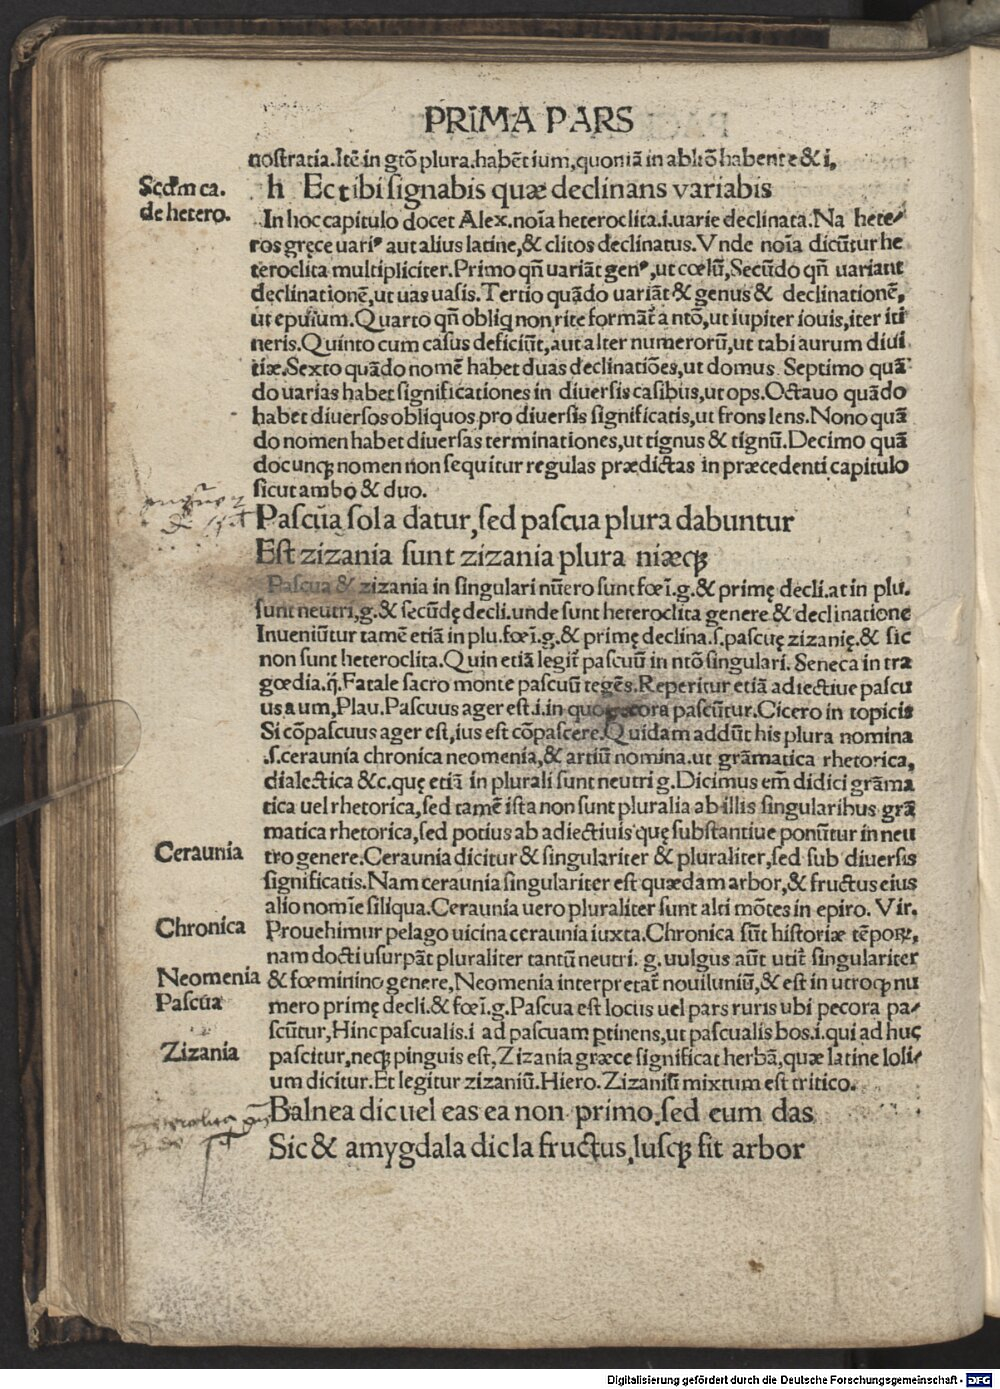 PRIMA PARS
nostratia.Itē in gtō plura.habēt ium,quoniā in abltō habent e & i,
Scdm ca.
de hetero.
h Ec tibi signabis quæ declinans variabis
In hoc capitulo docet Alex.noīa heteroclita.i.uarie declinata.Na hete/
ros gręce uariꝰ aut alius latine,& clitos declinatus.Vnde noīa dicūtur he
teroclita multipliciter.Primo qn̄ uariāt genꝰ,ut cœlū,Secūdo qn̄ uariant
declinationē,ut uas uasis.Tertio quādo uariāt & genus & declinationē,
ut epulum.Quarto qn̄ obliq non rite formāt̄ a ntō,ut iupiter iouis,iter iti
neris.Quinto cum casus deficiūt,aut alter numerorū,ut tabi aurum diui
tiæ.Sexto quādo nomē habet duas declinatiōes,ut domus. Septimo quā
do uarias habet significationes in diuersis casibus,ut ops.Octauo quādo
habet diuersos obliquos pro diuersis significatis,ut frons lens.Nono quā
do nomen habet diuersas terminationes,ut tignus & tignū.Decimo quā
docunqꝫ nomen non sequitur regulas prædictas in præcedenti capitulo
sicut ambo & duo.
Pascua sola datur,sed pascua plura dabuntur
Est zizania sunt zizania plura niæqꝫ
Pascua & zizania in singulari nūero sunt fœī.g.& primę decli.at in plu.
sunt neutri,g.& secūdę decli.unde sunt heteroclita genere & declinatione
Inueniūtur tamē etiā in plu.fœī.g.& primę declina.s.pascuę zizanię.& sic
non sunt heteroclita.Quin etiā legit̄ pascuū in ntō singulari. Seneca in tra
gœdia.q̄.Fatale sacro monte pascuū tegēs.Reperitur etiā adiectiue pascu
us a um,Plau.Pascuus ager est.i.in quo pecora pascūtur.Cicero in topicis
Si cōpascuus ager est,ius est cōpascere.Quidam addūt his plura nomina
.s.ceraunia chronica neomenia,& artiū nomina.ut grāmatica rhetorica,
dialectica &c.quę etiā in plurali sunt neutri g.Dicimus em̄ didici grāma
tica uel rhetorica,sed tamē ista non sunt pluralia ab illis singularibus grā
matica rhetorica,sed potius ab adiectiuis quę substantiue ponūtur in neu
Ceraunia
tro genere.Ceraunia dicitur & singulariter & pluraliter,sed sub diuersis
significatis.Nam ceraunia singulariter est quædam arbor,& fructus eius
alio nomīe siliqua.Ceraunia uero pluraliter sunt alti mōtes in epiro. Vir.
Chronica
Prouehimur pelago uicina ceraunia iuxta.Chronica sūt historiæ tēporꝝ,
nam docti usurpāt pluraliter tantū neutri. g.uulgus aūt utit̄ singulariter
Neomenia
& fœminino genere,Neomenia interpretat̄ nouiluniū,& est in utroqꝫ nu
Pascua
mero primę decli.& fœī.g.Pascua est locus uel pars ruris ubi pecora pa/
scūtur,Hinc pascualis.i ad pascuam ꝑtinens,ut pascualis bos.i.qui ad huc
Zizania
pascitur,neqꝫ pinguis est,Zizania græce significat herbā,quæ latine loli/
um dicitur.Et legitur zizaniū.Hiero.Zizaniū mixtum est tritico.
Balnea dic uel eas ea non primo,sed eum das
Sic & amygdala dic la fructus,lusqꝫ fit arbor
Digitalisierung gefördert durch die Deutsche Forschungsgemeinschaft - DFG